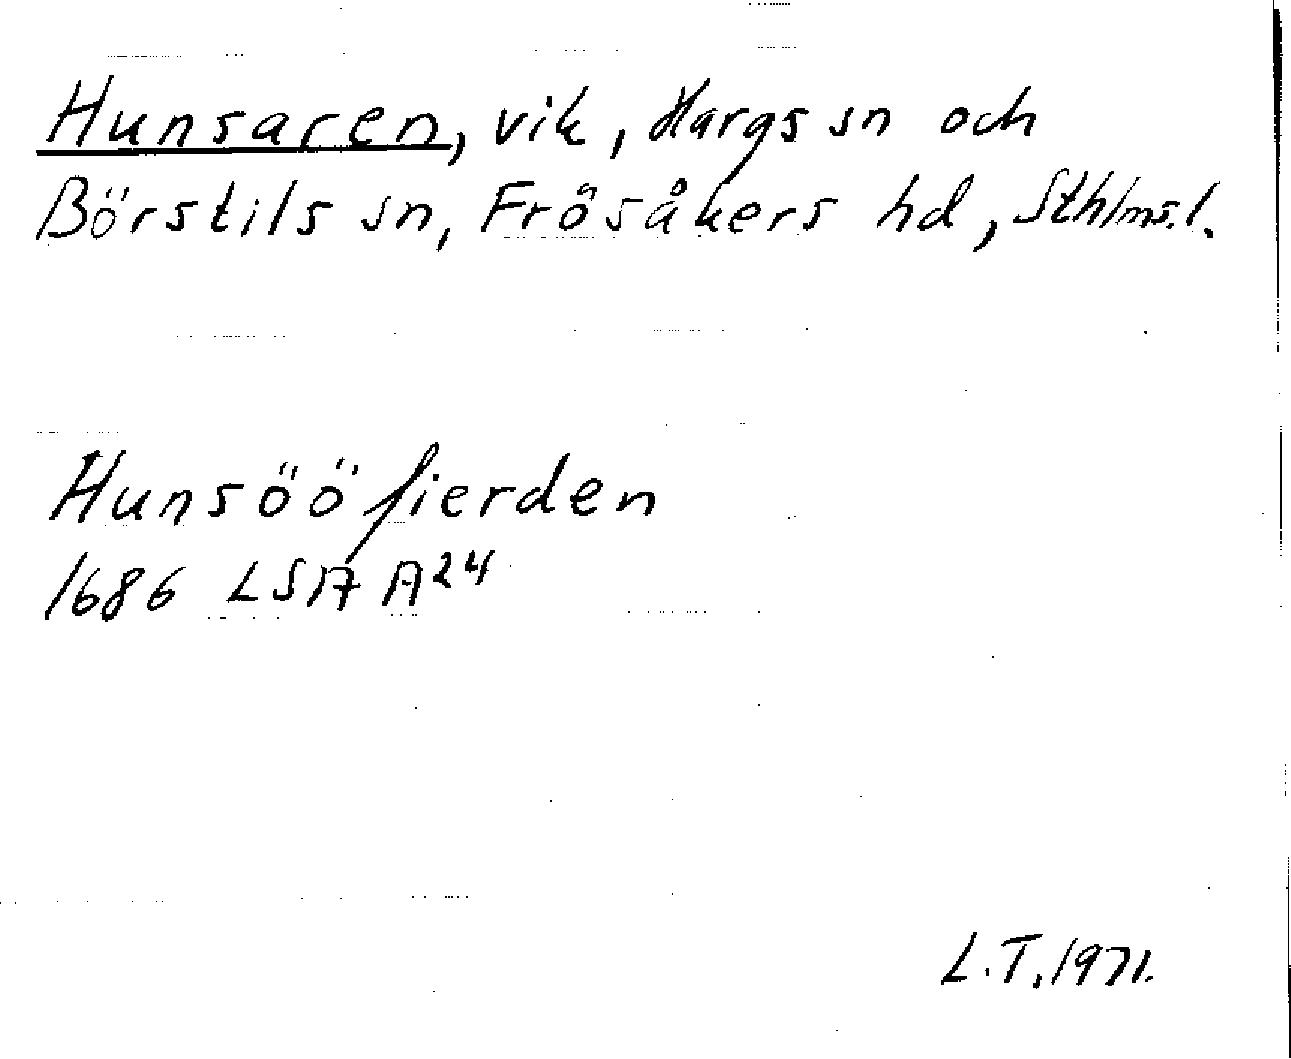 Hunsaren, vik, Hargs sn och
Börstils sn, Frösåkers hd, Sthlms.l.
Hunsööfierden
1686 LSA A24
L.T. 1971.